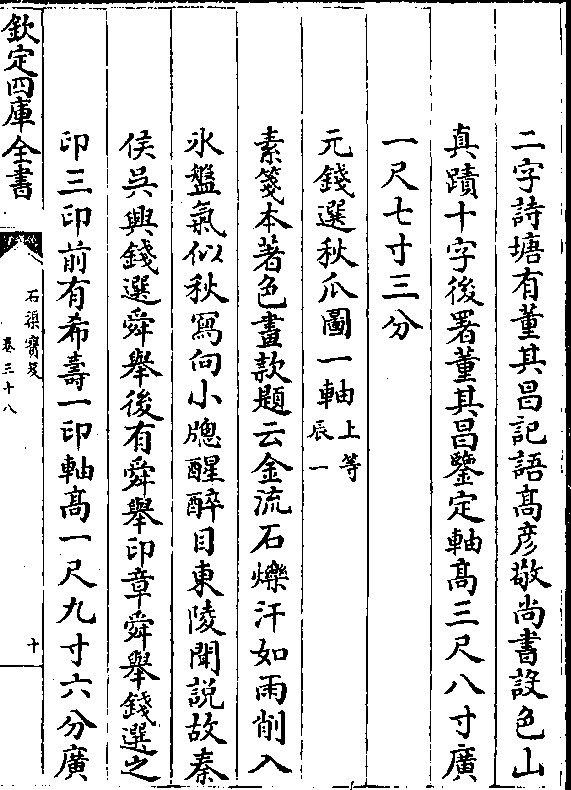 二字詩塘有董其昌記語髙彦敬尚書設色山
真蹟十字後署董其昌鑒定軸髙三尺八寸廣
一尺七寸三分
元錢選秋爪圖一軸上等辰一
素箋本著色畫款題云金流石爍汗如雨削入
氷盤氣似秋寫向小牕醒醉目東陵聞説故秦
侯吳興錢選舜舉後有舜舉印章舜舉錢選之
印三印前有希壽一印軸髙一尺九寸六分廣
欽定四庫全書
石渠寳笈
卷三十八
十